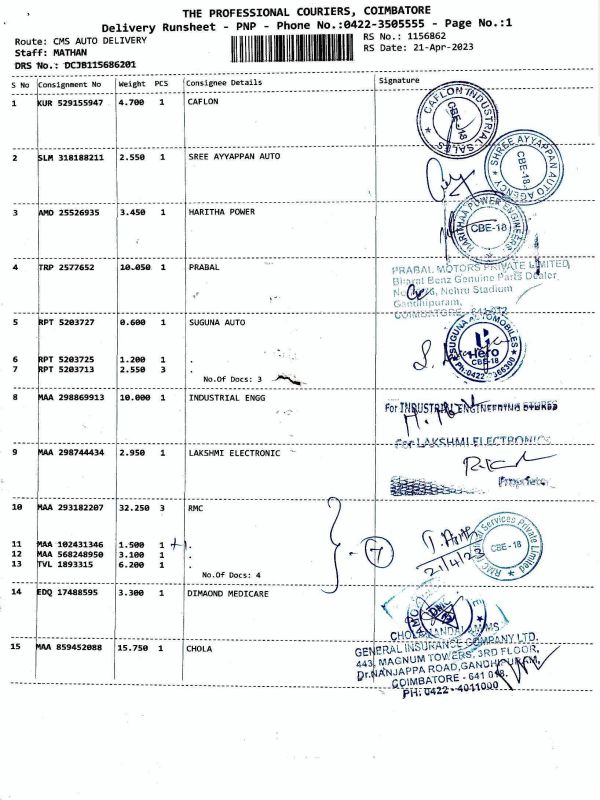 THE PROFESSIONAL COURIERS, COIMBATORE
Delivery Runsheet - PNP - Phone No.:0422-3505555 - Page No.:1
Route: CMS AUTO DELIVERY
Staff: MATHAN
DRS No.: DCJB115686201
RS No.: 1156862
RS Date: 21-Apr-2023
S No Consignment No Weight PCS Consignee Details Signature
1 KUR 529155947 4.700 1 CAFLON
CAFLON INDUSTRIAL SALES
CBE-18
2 SLM 318188211 2.550 1 SREE AYYAPPAN AUTO
SHREE AYYAPPAN AUTO AGENCY
CBE-18
3 AMD 25526935 3.450 1 HARITHA POWER
HARITHAA POWER ENGINEERS
CBE-18
4 TRP 2577652 10.050 1 PRABAL
PRABAL MOTORS PRIVATE LIMITED
Bharat Benz Genuine Parts Dealer,
Nehru Stadium
Gandhipuram,
COIMBATORE - 641
5 RPT 5203727 0.600 1 SUGUNA AUTO
SUGUNA AUTOMOBILES
Hero
CBE-18
6 RPT 5203725 1.200 1 .
7 RPT 5203713 2.550 3 .
No.Of Docs: 3
8 MAA 298869913 10.000 1 INDUSTRIAL ENGG
For INDUSTRIAL ENGINEERING STORES
For LAKSHMI ELECTRONICS
9 MAA 298744434 2.950 1 LAKSHMI ELECTRONIC
Proprietor
10 MAA 293182207 32.250 3 RMC
RMC Medical Services Private Limited
CBE-18
11 MAA 102431346 1.500 1 +1 .
12 MAA 568248950 3.100 1 .
13 TVL 1893315 6.200 1 .
No.Of Docs: 4
- 7
21/4/23
14 EDQ 17488595 3.300 1 DIMAOND MEDICARE
15 MAA 859452088 15.750 1 CHOLA
CHOLAMANDALAM MS
GENERAL INSURANCE COMPANY LTD,
443, MAGNUM TOWERS, 3RD FLOOR,
Dr.NANJAPPA ROAD, GANDHIPURAM,
COIMBATORE - 641 018.
PH: 0422 - 4011000